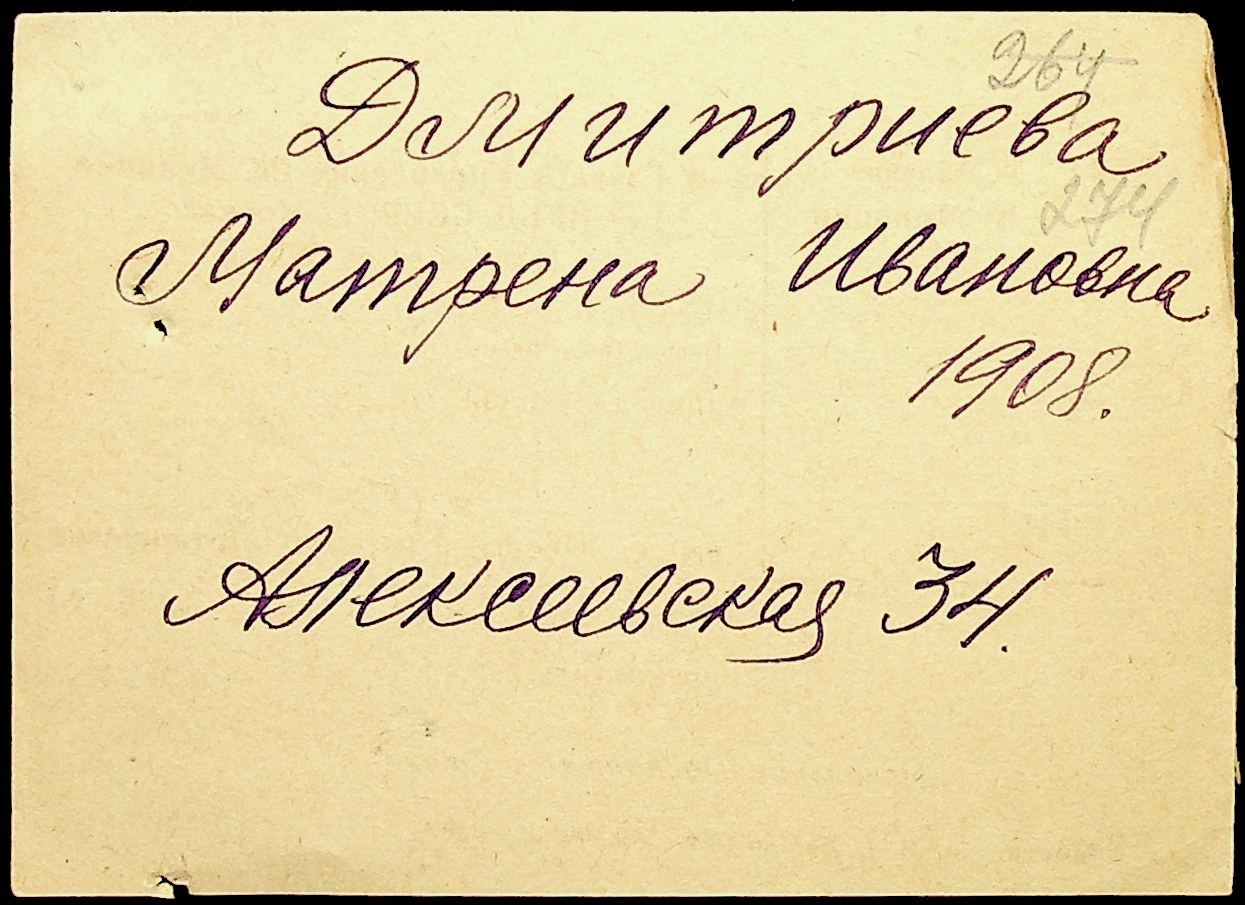 264
Дмитриева
274
Матрена Ивановна
1908.
Алексеевская 34.